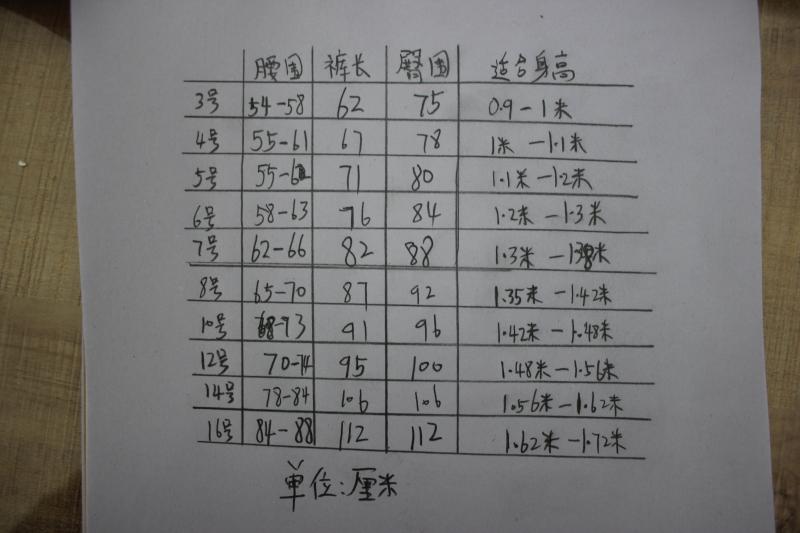 腰围 裤长 臀围 适合身高
3号 54-58 62 75 0.9-1米
4号 55-61 67 78 1米-1.1米
5号 55-62 71 80 1.1米-1.2米
6号 58-63 76 84 1.2米-1.3米
7号 62-66 82 88 1.3米-1.38米
8号 65-70 87 92 1.35米-1.42米
10号 68-73 91 96 1.42米-1.48米
12号 70-74 95 100 1.48米-1.56米
14号 78-84 106 106 1.56米-1.62米
16号 84-88 112 112 1.62米-1.72米
单位:厘米